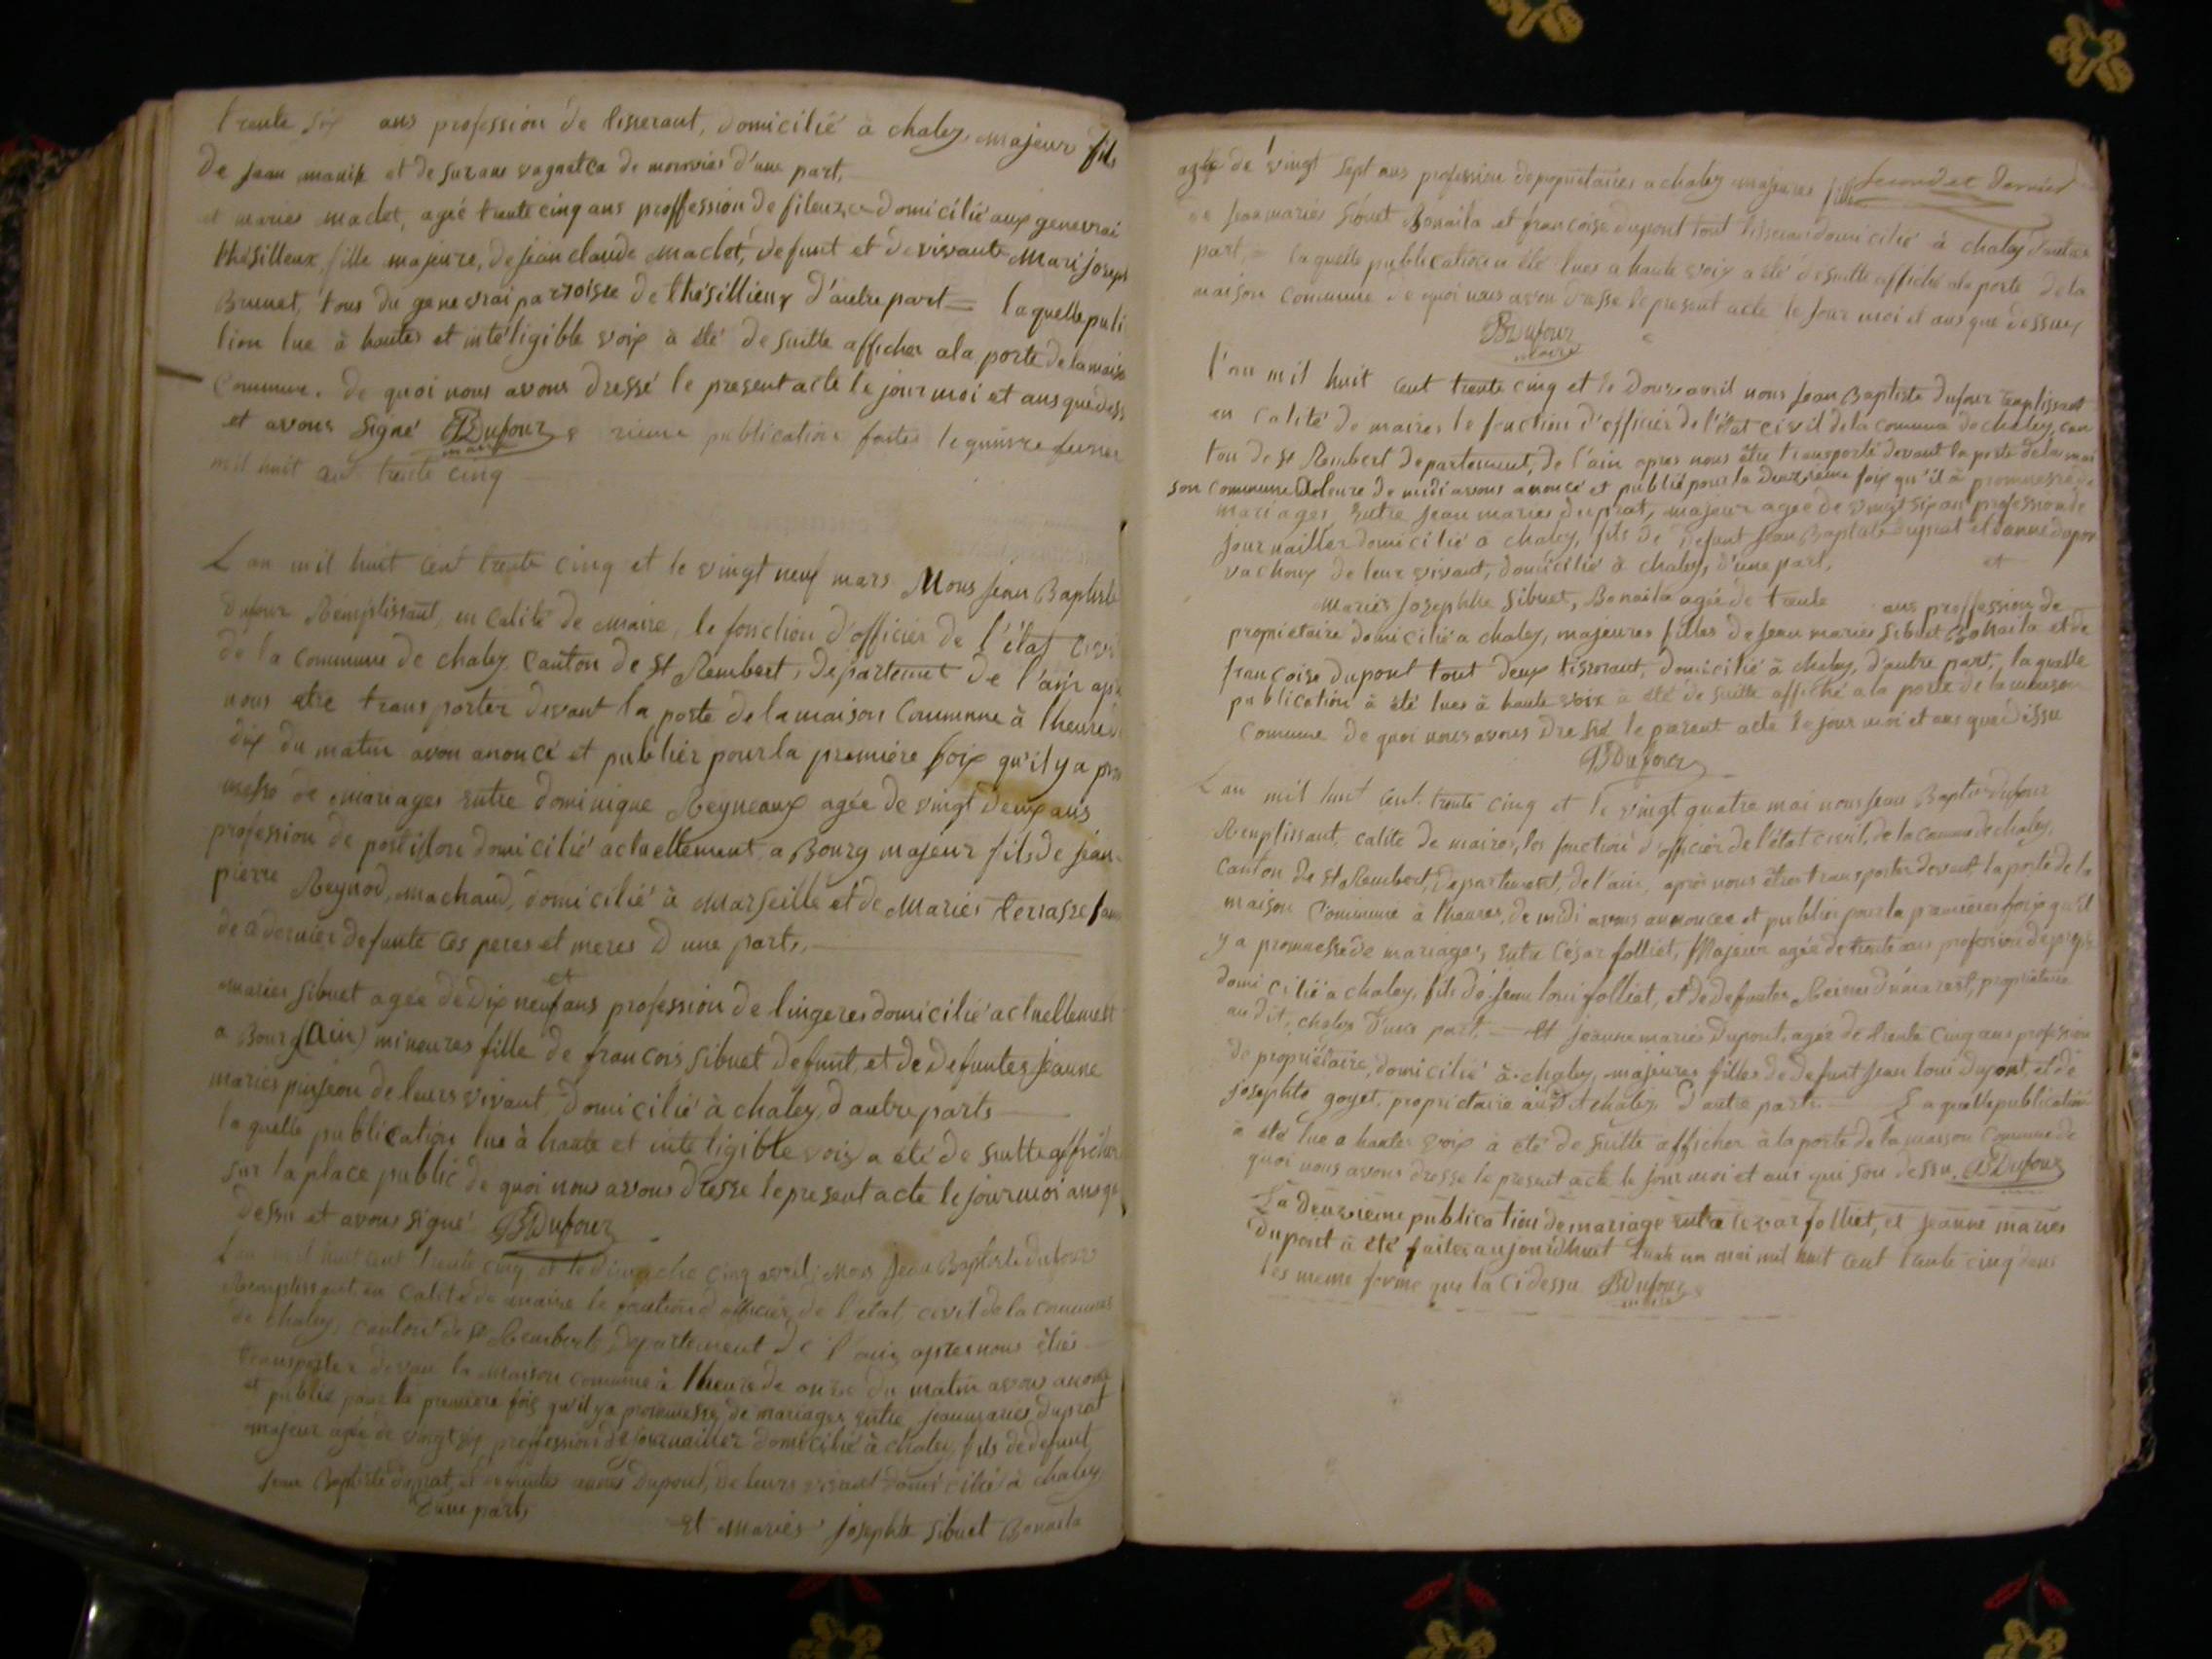 trente six ans profession de tisserant, domicilié à chaley majeur fils
De jean manik et de suzane vagnat ca de mornvias d'une part,
et maries maclet, ageé trente cinq ans proffession de fileuze domicilié aux genevrai
thésilleux, fille majeure, de jean claude maclet, defunt et de vivante Mari joseph
Brunet, tous du genevrai parroisse de thésillieux d'autre part = laquelle puli
tion lue à hautes et intéligible voix à été de suitte afficher a la porte de la maiso
Commune. de quoi nous avons dressé le present acte le jour moi et ans que dess
et avons signé BDufour publication faites le quinze fevrier
maire
mil huit cent trente cinq
L an mil huit cent trente cinq et le vingt neuf mars Nous jean Baptiste
dufour Remplissant, en calité de maire, le fonction d'officiér de l'état civi
de la commune de chaley Canton de St Rembert, departement de l'ain apr
nous etre transporter devant la porte de la maison Commune à lheure d
dix du matin avon anoncé et publier pour la premiére foix qu'il y a pro
messe de mariages entre dominique Reyneaux agée de vingt deux ans
profession de postillon domicilié actuellement a Bourg majeur fils de jean
pierre Reynod, machand, domicilié à Marseille et de Mariés terrasse
de a dernier defunte ces peres et meres d une parts,
et
maries sibuet agée de dix neuf ans profession de lingeres domicilié actuellement
a Bourg (Ain) mineures fille de francois sibuet defunt, et de defuntes jeanne
maries pinjeon de leurs vivant domicilié à chaley, d autre parts
la quelle publication lue à haute et inteligible voix a été de suitte afficher
sur la place public de quoi nous avons dresse le present acte le jour moi ans qu
dessu et avons signé BDufour
L an mil huit cent trente cinq et le dimache cinq avril, nous jean Baptiste dufour
Remplissant en calité de maire le fonction d officiér de l'état civil de la communes
de chaley, canton de St Rembert departement de l'ain apres nous êtres
transporter devan la maison comune à lheure de onze du matin avons anoncé
et publié pour la premiere foix qu'il y a prommesse de mariages entre jeanmaries duprat
majeur agée de vingt six proffession de journailler domicilié à chaley, fils de defunt
jean Baptiste duprat, et defuntes annes Dupont, de leurs vivant domicilié à chaley
d'une parts
Et Maries josephte sibuet Bonaila
agée de vingt sept ans profession de proprietaires a chaley majeures fille second et dernier
de jean maries sibuet Bonaila et francoise dupont tout tisseran domicilié à chaley d'autre
part, = la quelle publication a été lues a haute voix a été de suitte affiché a la porte de la
maison commune de quoi nous avon dresse le present acte le jour moi et ans que dessus
BDufour
maire
l'an mil huit cent trente cinq et le douze avril nous jean Baptiste dufour remplissant
en calité de maires le fonction d'officiér de l'état civil de la commune de chaley, can
ton de St Rembert departement, de l'ain apres nous être transporté devant la porte de la mai
son commune a lheure de midi avons anoncé et publié pour la deuxrieme foix qu'il à prommesse de
mariages entre jean maries duprat, majeur agée de vingt six an profession de
journailler domicilié a chaley, fils de defunt jean Baptiste duprat et d anne dupon
vachoux de leur vivant, domicilié à chaley, d'une part, et
Maries josephte sibuet, Bonaila agée de trente ans proffession de
proprietaire domicilié a chaley, majeures filles de jean maries sibuet Bonaila et de
francoise dupont tout deux tisserant, domicilié à chaley, d'autre part, la quelle
publication à été lues à haute voix a été de suitte affiché a la porte de la maison
comune de quoi nous avons dressé le parent acte le jour moi et ans que dessu
BDufour
L an mil huit cent trente cinq et le vingt quatre mai nous jean Baptiste dufour
Remplissant, calite de maires, les fonction d'officiér de l'état civil, de la commune de chaley,
Canton de St Rembert, Departement, de l'ain, aprés nous êtres transporter devant, la porte de la
maison Commune à lheures, de midi avons annoncee et publier pour la premieres foix qu'il
y a prommesse de mariages, entre César folliet, Majeur agée de trente ans profession de propr
domicilié a chaley, fils de jean loui folliet, et de defuntes Reine dumarest, proprietaire
au dit, chaley d'une part. = Et jeanne maries Dupont, agée de trente cinq ans profession
de propriétaire, domicilié à chaley, majeures filles de defunt jean loui dupont, et de
josephte goyet, proprietaire au dit chaley, d autre parts. La quelle publication
a été lue a hautes voix à été de suitte afficher à la porte de la maison commune de
quoi nous avons dresse le present acte le jour moi et ans qui son dessu. BDufour
La deuxrieme publication de mariage entre cesar folliet, et jeanne maries
dupont à été faites aujourdhuit trente un mai mil huit cent trente cinq dans
les meme forme que la ci dessu BDufour
maire